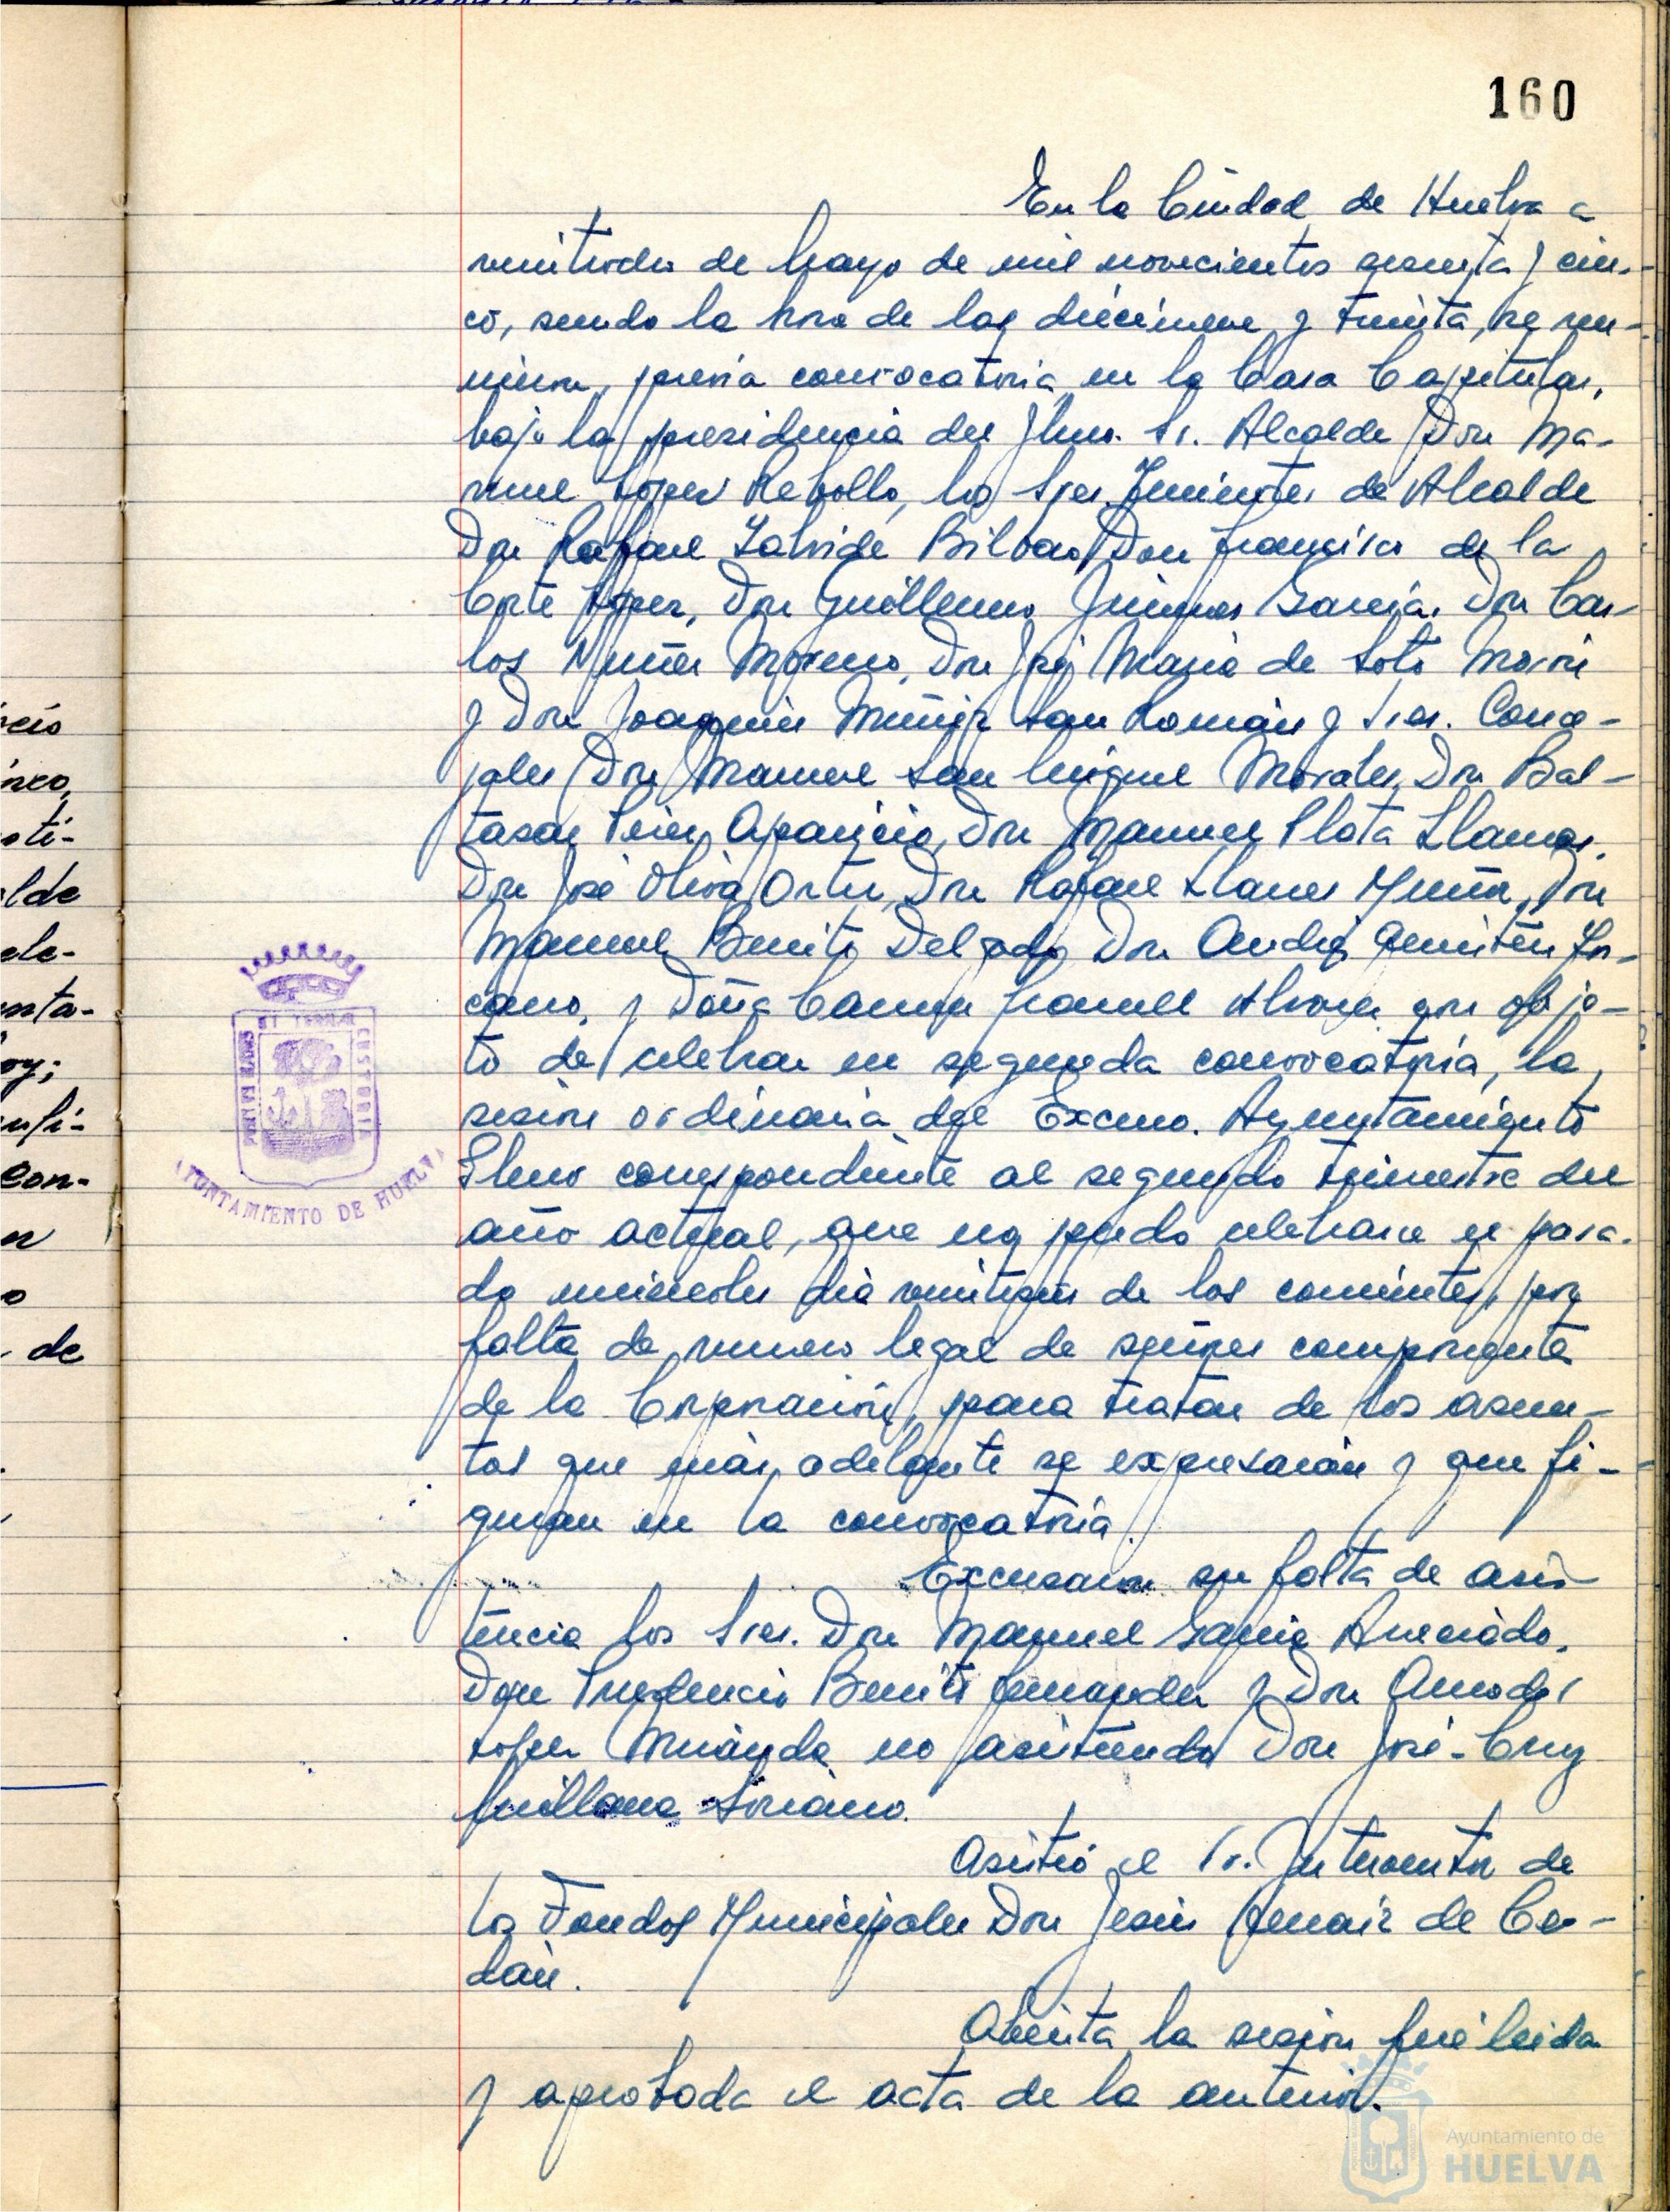 160
En la Ciudad de Huelva a
veintiocho de Mayo de mil novecientos sesenta y cin-
co, siendo la hora de las diecinueve y treinta, se reu-
nieron, previa convocatoria en la Casa Capitular,
bajo la presidencia del Ilmo. Sr. Alcalde Don Ma-
nuel López Rebollo, los Sres. Tenientes de Alcalde
Don Rafael Zalvide Bilbao, Don Francisco de la
Corte López, Don Guillermo Jiménez García, Don Car-
los Núñez Moreno, Don José María de Soto Morón
y Don Joaquín Muñiz San Román y Sres. Conce-
jales Don Manuel San Miguel Morales, Don Bal-
tasar Pérez Aparicio, Don Manuel Plata Llamas,
Don José Oliva Ortiz, Don Rafael Llanes Muñoz, Don
Manuel Benito Delgado, Don Andrés
cano, y Doña Carmen Alvarez con obje-
to de celebrar en segunda convocatoria, la
sesión ordinaria del Excmo. Ayuntamiento
Pleno correspondiente al segundo trimestre del
año actual, que no pudo celebrarse el pasa-
do miércoles día veintiseis de los corrientes, por
falta de numero legal de señores componentes
de la Corporación, para tratar de los asun-
tos que más adelante se expresarán y que fi-
guran en la convocatoria.
Excusaron su falta de asis-
tencia los Sres. Don Manuel García
Don Prudencio Benito Fernandez y Don Amador
López Miranda no asistiendo Don José-Cruz
Soriano.
Asistió el Sr. Interventor de
los Fondos Municipales Don Jesús de Ce-
lain.
Abierta la sesión fué leida
y aprobada el acta de la anterior.
PORTUS MARIS
ET TERRAE
CUSTODIA
AYUNTAMIENTO DE HUELVA
lde
ele-
nta-
con-
de
Ayuntamiento de
HUELVA